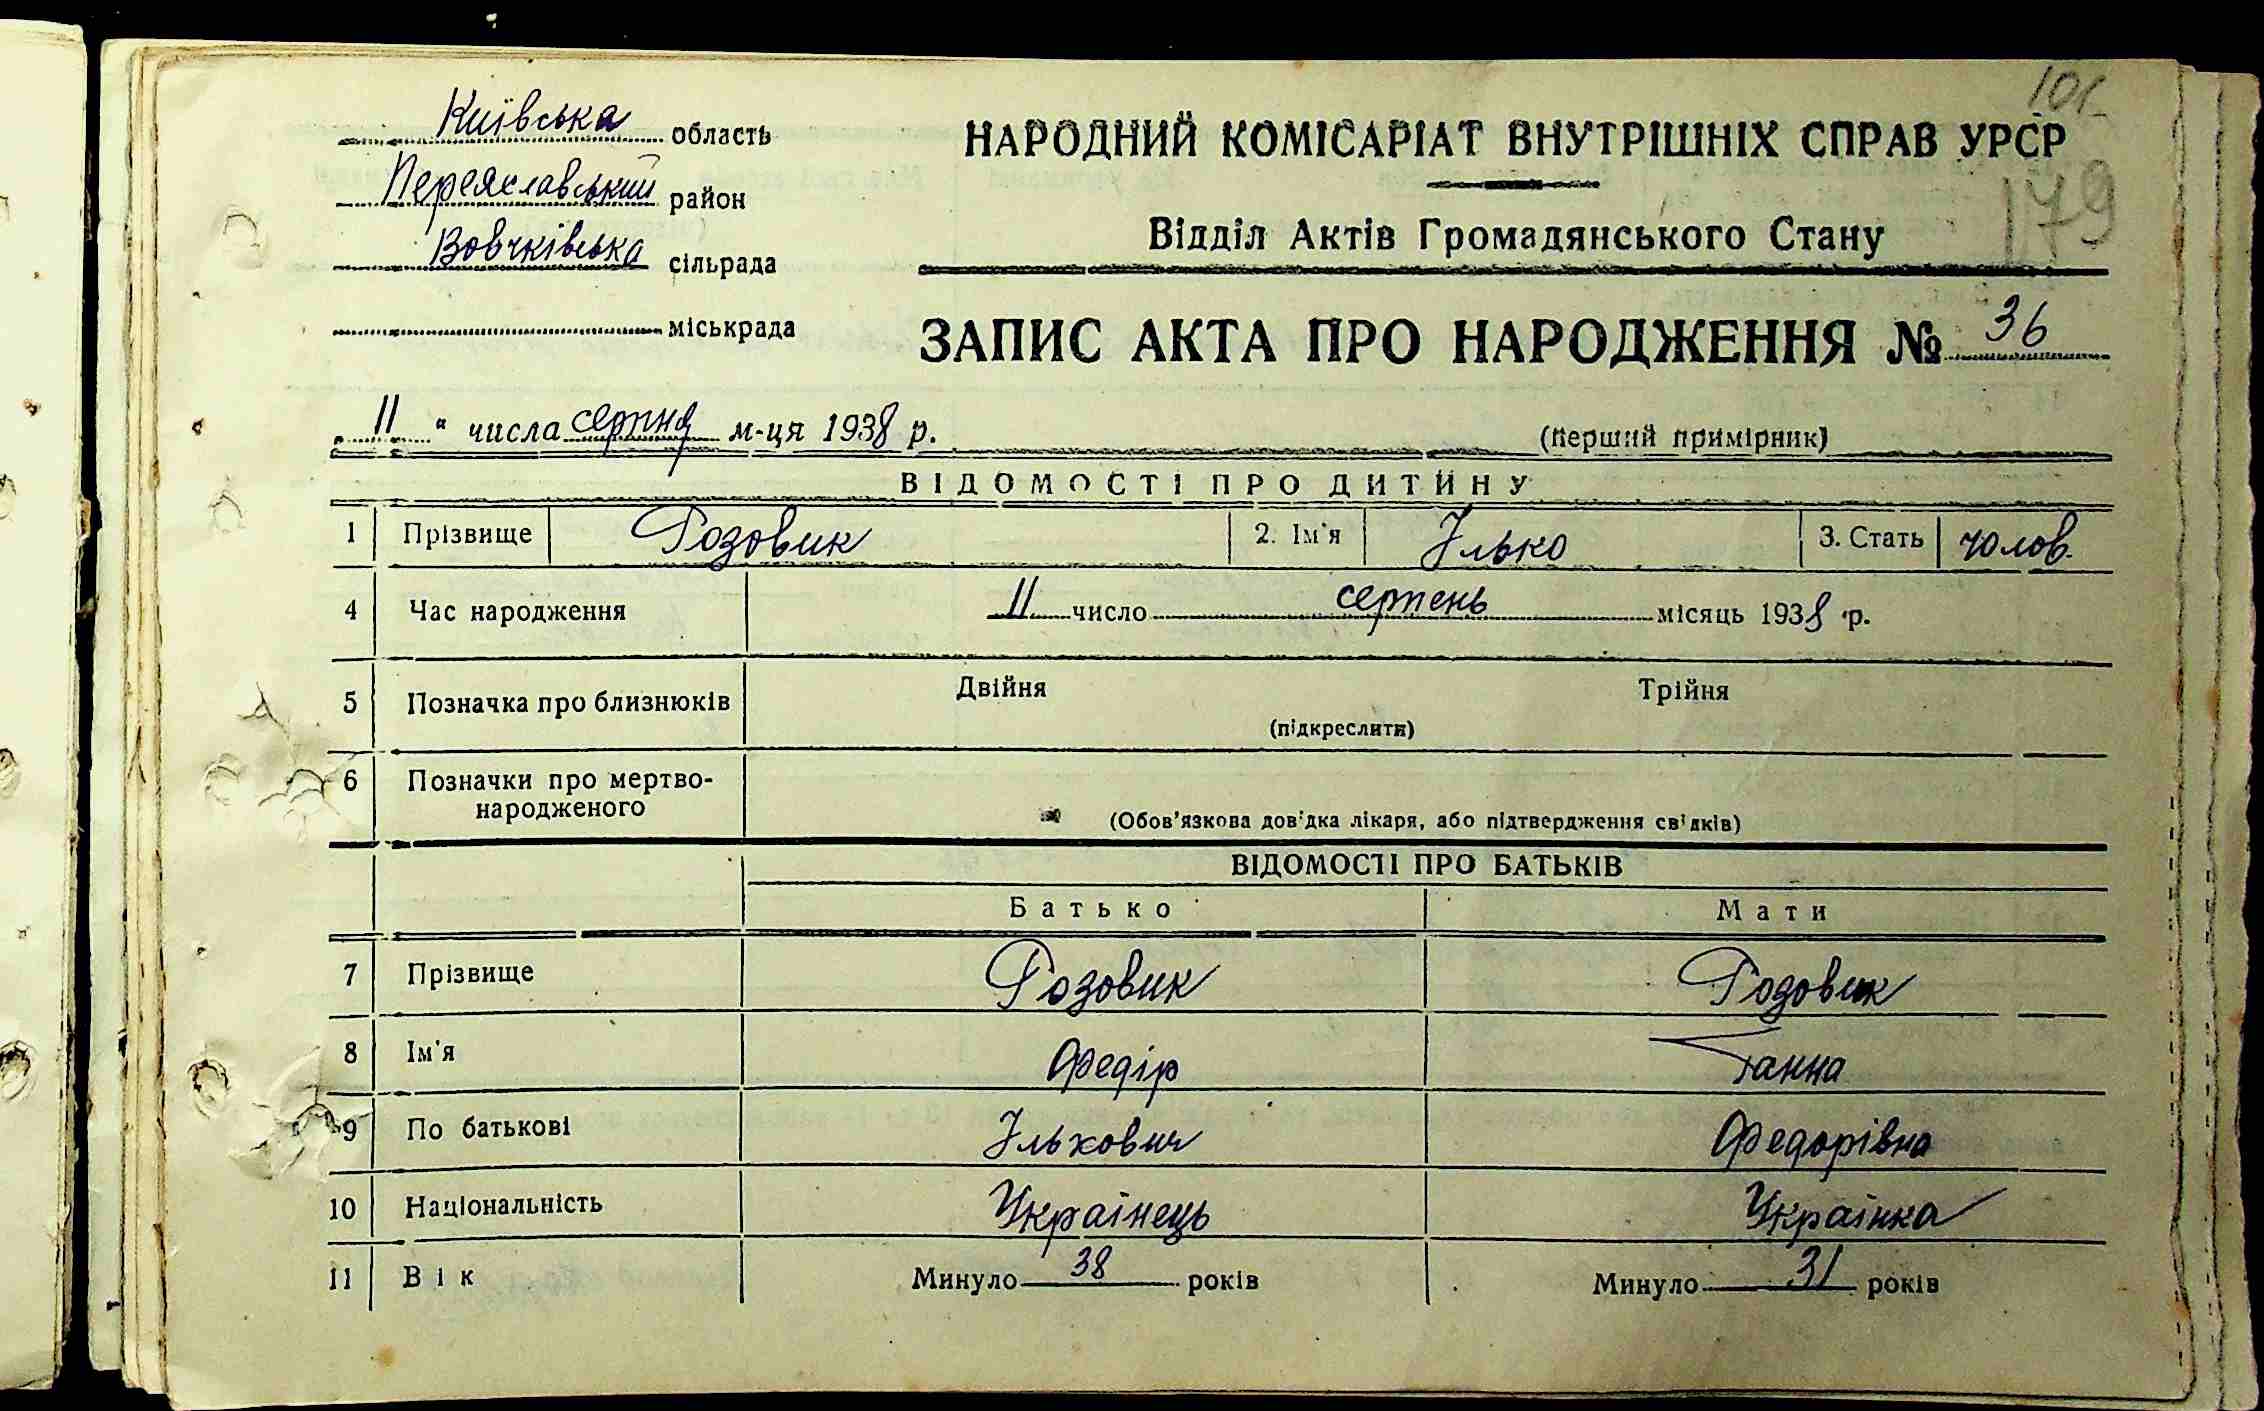 101
179
Київська область
Переяславський район
Вовчківська сільрада
міськрада
НАРОДНИЙ КОМІСАРІАТ ВНУТРІШНІХ СПРАВ УРСР
Відділ Актів Громадянського Стану
ЗАПИС АКТА ПРО НАРОДЖЕННЯ № 36
11 " числа серпня м-ця 1938 р.
(перший примірник)
ВІДОМОСТІ ПРО ДИТИНУ
1 Прізвище Розовик 2. Ім'я Ілько 3. Стать чолов.
4 Час народження 11 число серпень місяць 1938 р.
5 Позначка про близнюків Двійня Трійня
(підкреслити)
6 Позначки про мертво-
народженого
(Обов'язкова довідка лікаря, або підтвердження свідків)
ВІДОМОСТІ ПРО БАТЬКІВ
Батько Мати
7 Прізвище Розовик Розовик
8 Ім'я Федір Ганна
9 По батькові Ількович Федорівна
10 Національність Українець Українка
11 Вік Минуло 38 років Минуло 31 років